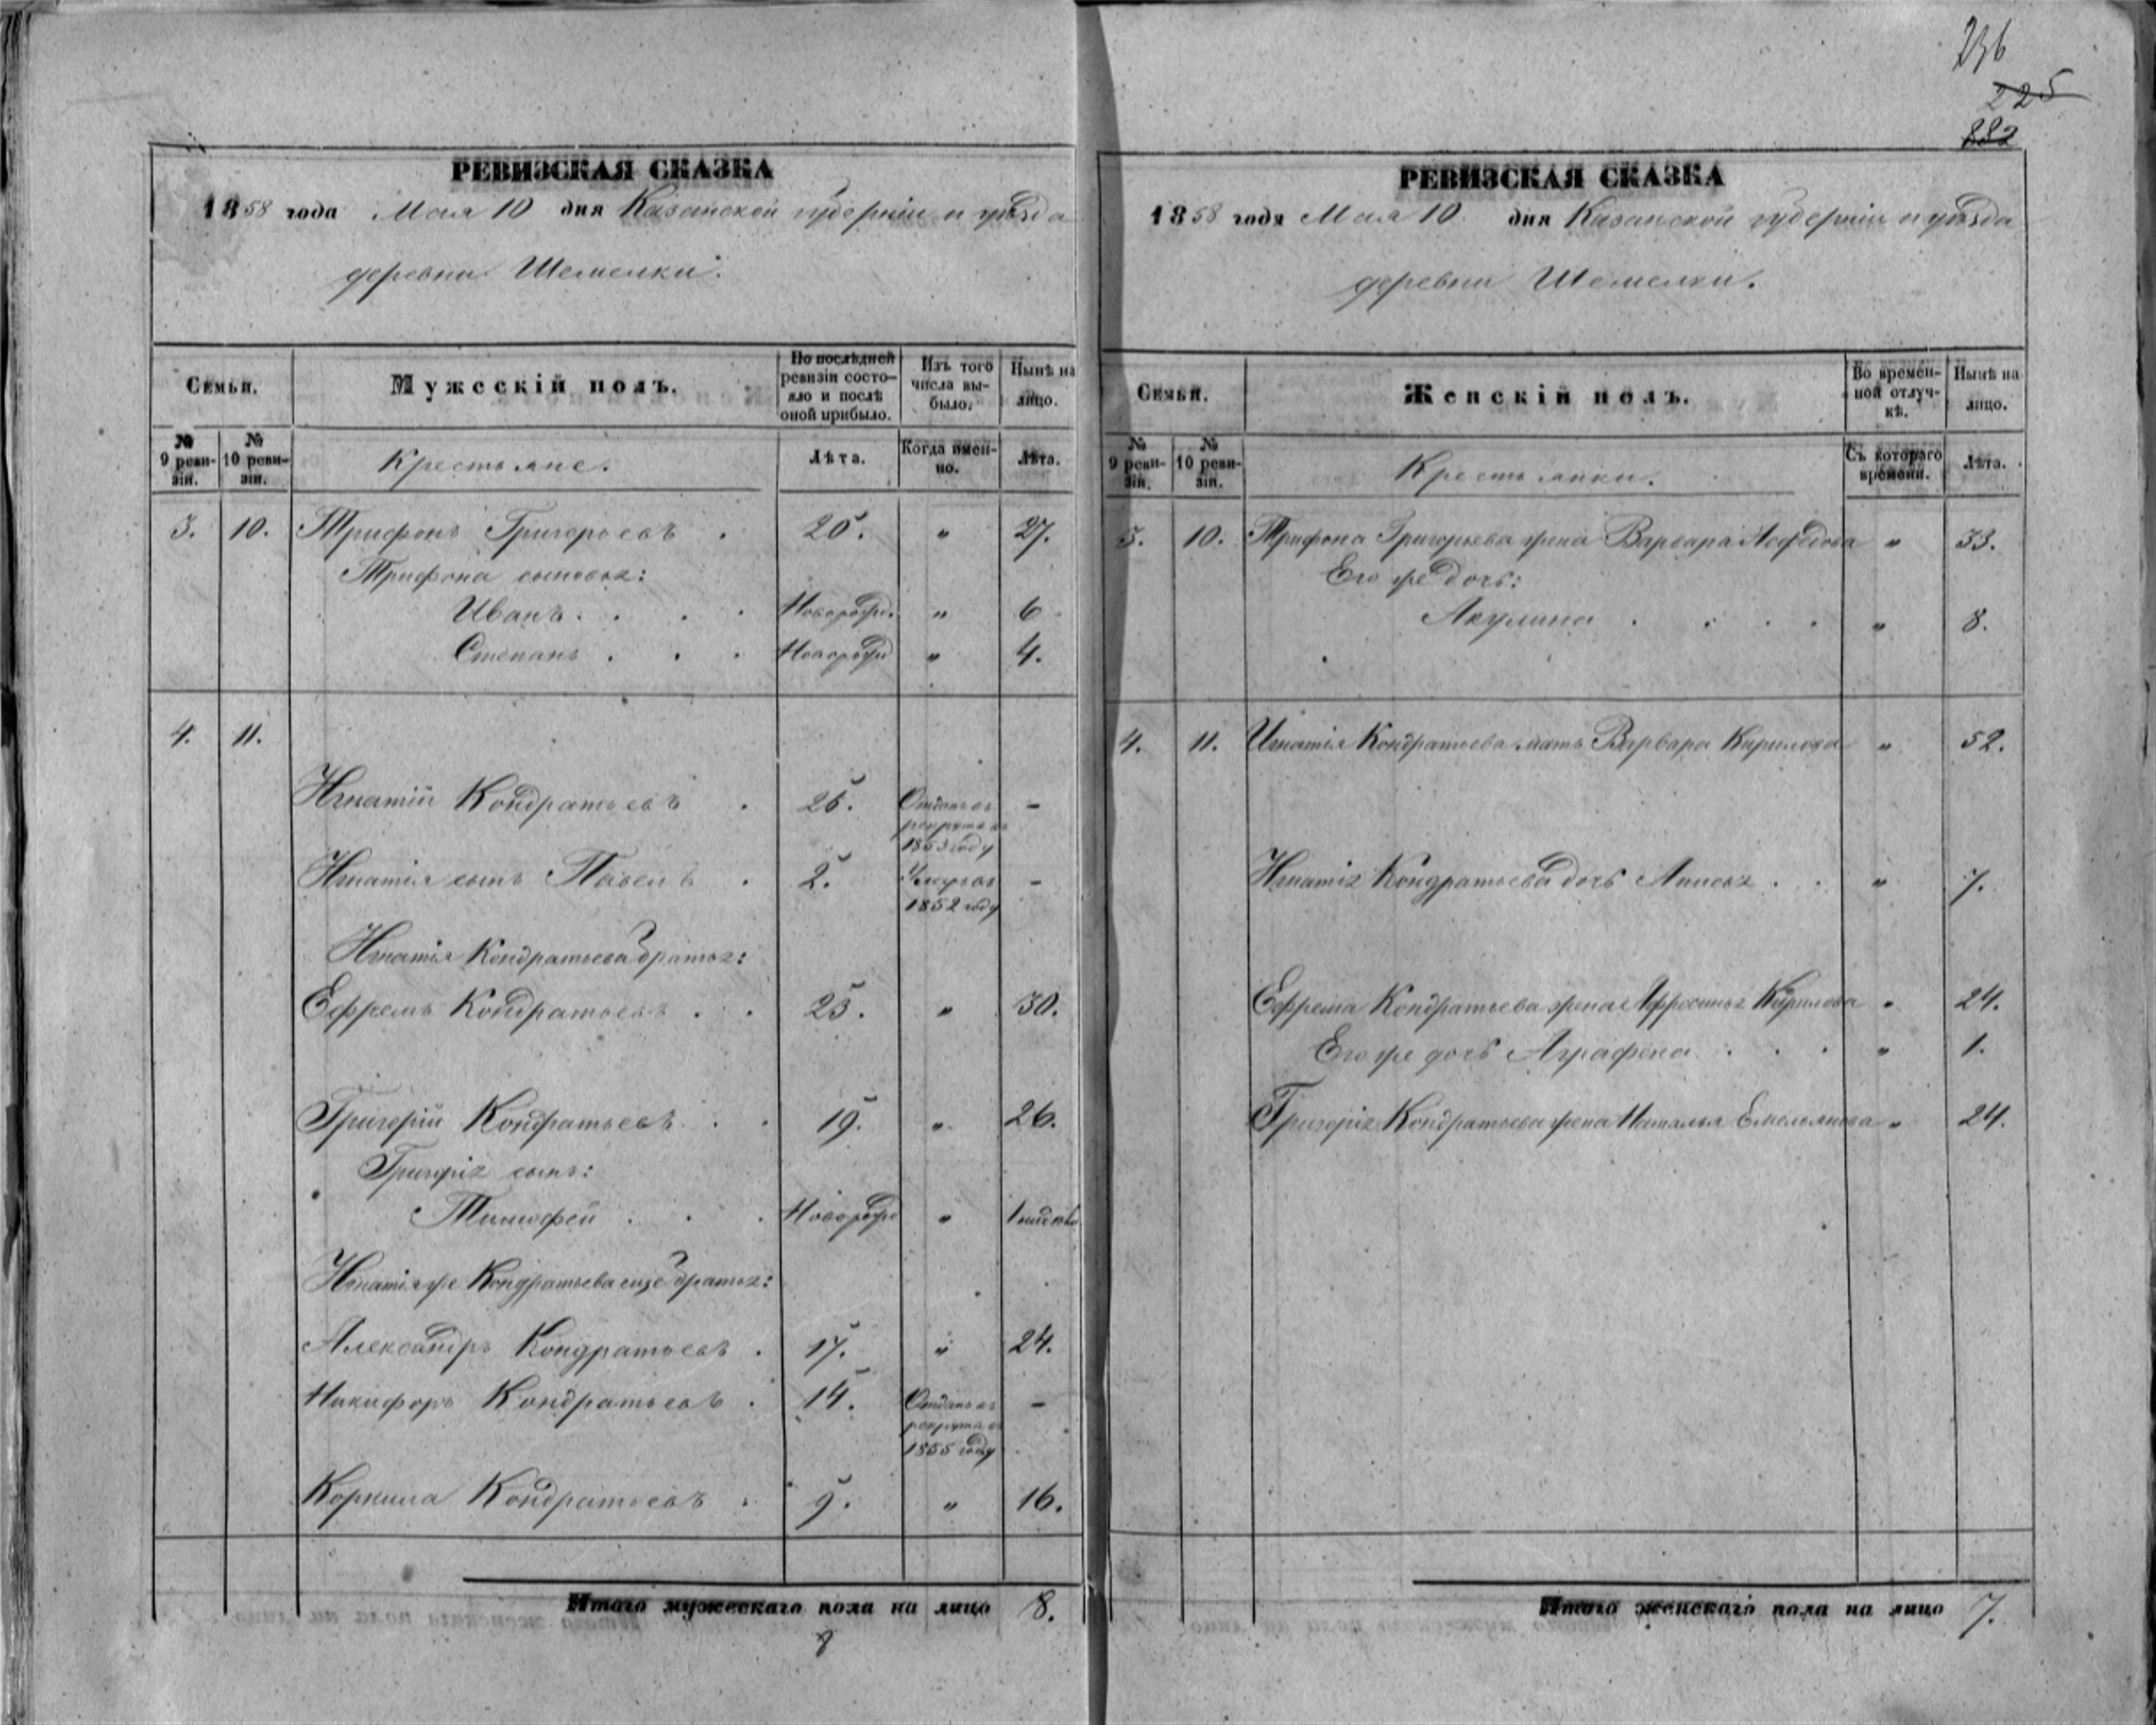 236
225
882
РЕВИЗСКАЯ СКАЗКА
1858 года Мая 10 дня Казанской губерніи и уѣзда
деревни Шемелки.
Семьи.
Мужескій полъ.
По послѣдней ревизіи состояло и послѣ оной прибыло.
Изъ того числа выбыло.
Нынѣ на лицо.
№ 9 ревизіи.
№ 10 ревизіи.
Крестьяне.
Лѣта.
Когда именно.
Лѣта.
3. 10. Трифонъ Григорьевъ . 20. " 27.
Трифона сыновья:
Иванъ . . . . Новорожд. " 6
Степанъ . . . Новорожд " 4.
4. 11.
Игнатій Кондратьевъ . 26. Отданъ въ рекруты въ 1853 году -
Игнатія сынъ Павелъ . 2. Умеръ въ 1852 году -
Игнатія Кондратьева братья:
Ефремъ Кондратьевъ . . 23. " 30.
Григорій Кондратьевъ . . 19. " 26.
Григорія сынъ:
Тимофей . . . Новорожд "
Игнатія же Кондратьева еще братья:
Александръ Кондратьевъ . 17. " 24.
Никифоръ Кондратьевъ . 14. Отданъ въ рекруты въ 1855 году -
Корнила Кондратьевъ . 9. " 16.
Итого мужескаго пола на лицо 8.
8
РЕВИЗСКАЯ СКАЗКА
1858 года Мая 10 дня Казанской губерніи и уѣзда
деревни Шемелки.
Семьи.
Женскій полъ.
Во временной отлучкѣ.
Нынѣ на лицо.
№ 9 ревизіи.
№ 10 ревизіи.
Крестьянки.
Съ котораго времени.
Лѣта.
3. 10. Трифона Григорьева жена Варвара " 33.
Его же дочь:
Акулина . . . . " 8.
4. 11. Игнатія Кондратьева мать Варвара Кирилова " 52.
Игнатія Кондратьева дочь Анисья . . " 7.
Ефрема Кондратьева жена Афросинья Кирилова " 24.
Его же дочь Аграфена . . . " 1.
Григорія Кондратьева жена Наталья Емельянова " 24.
Итого женскаго пола на лицо 7.